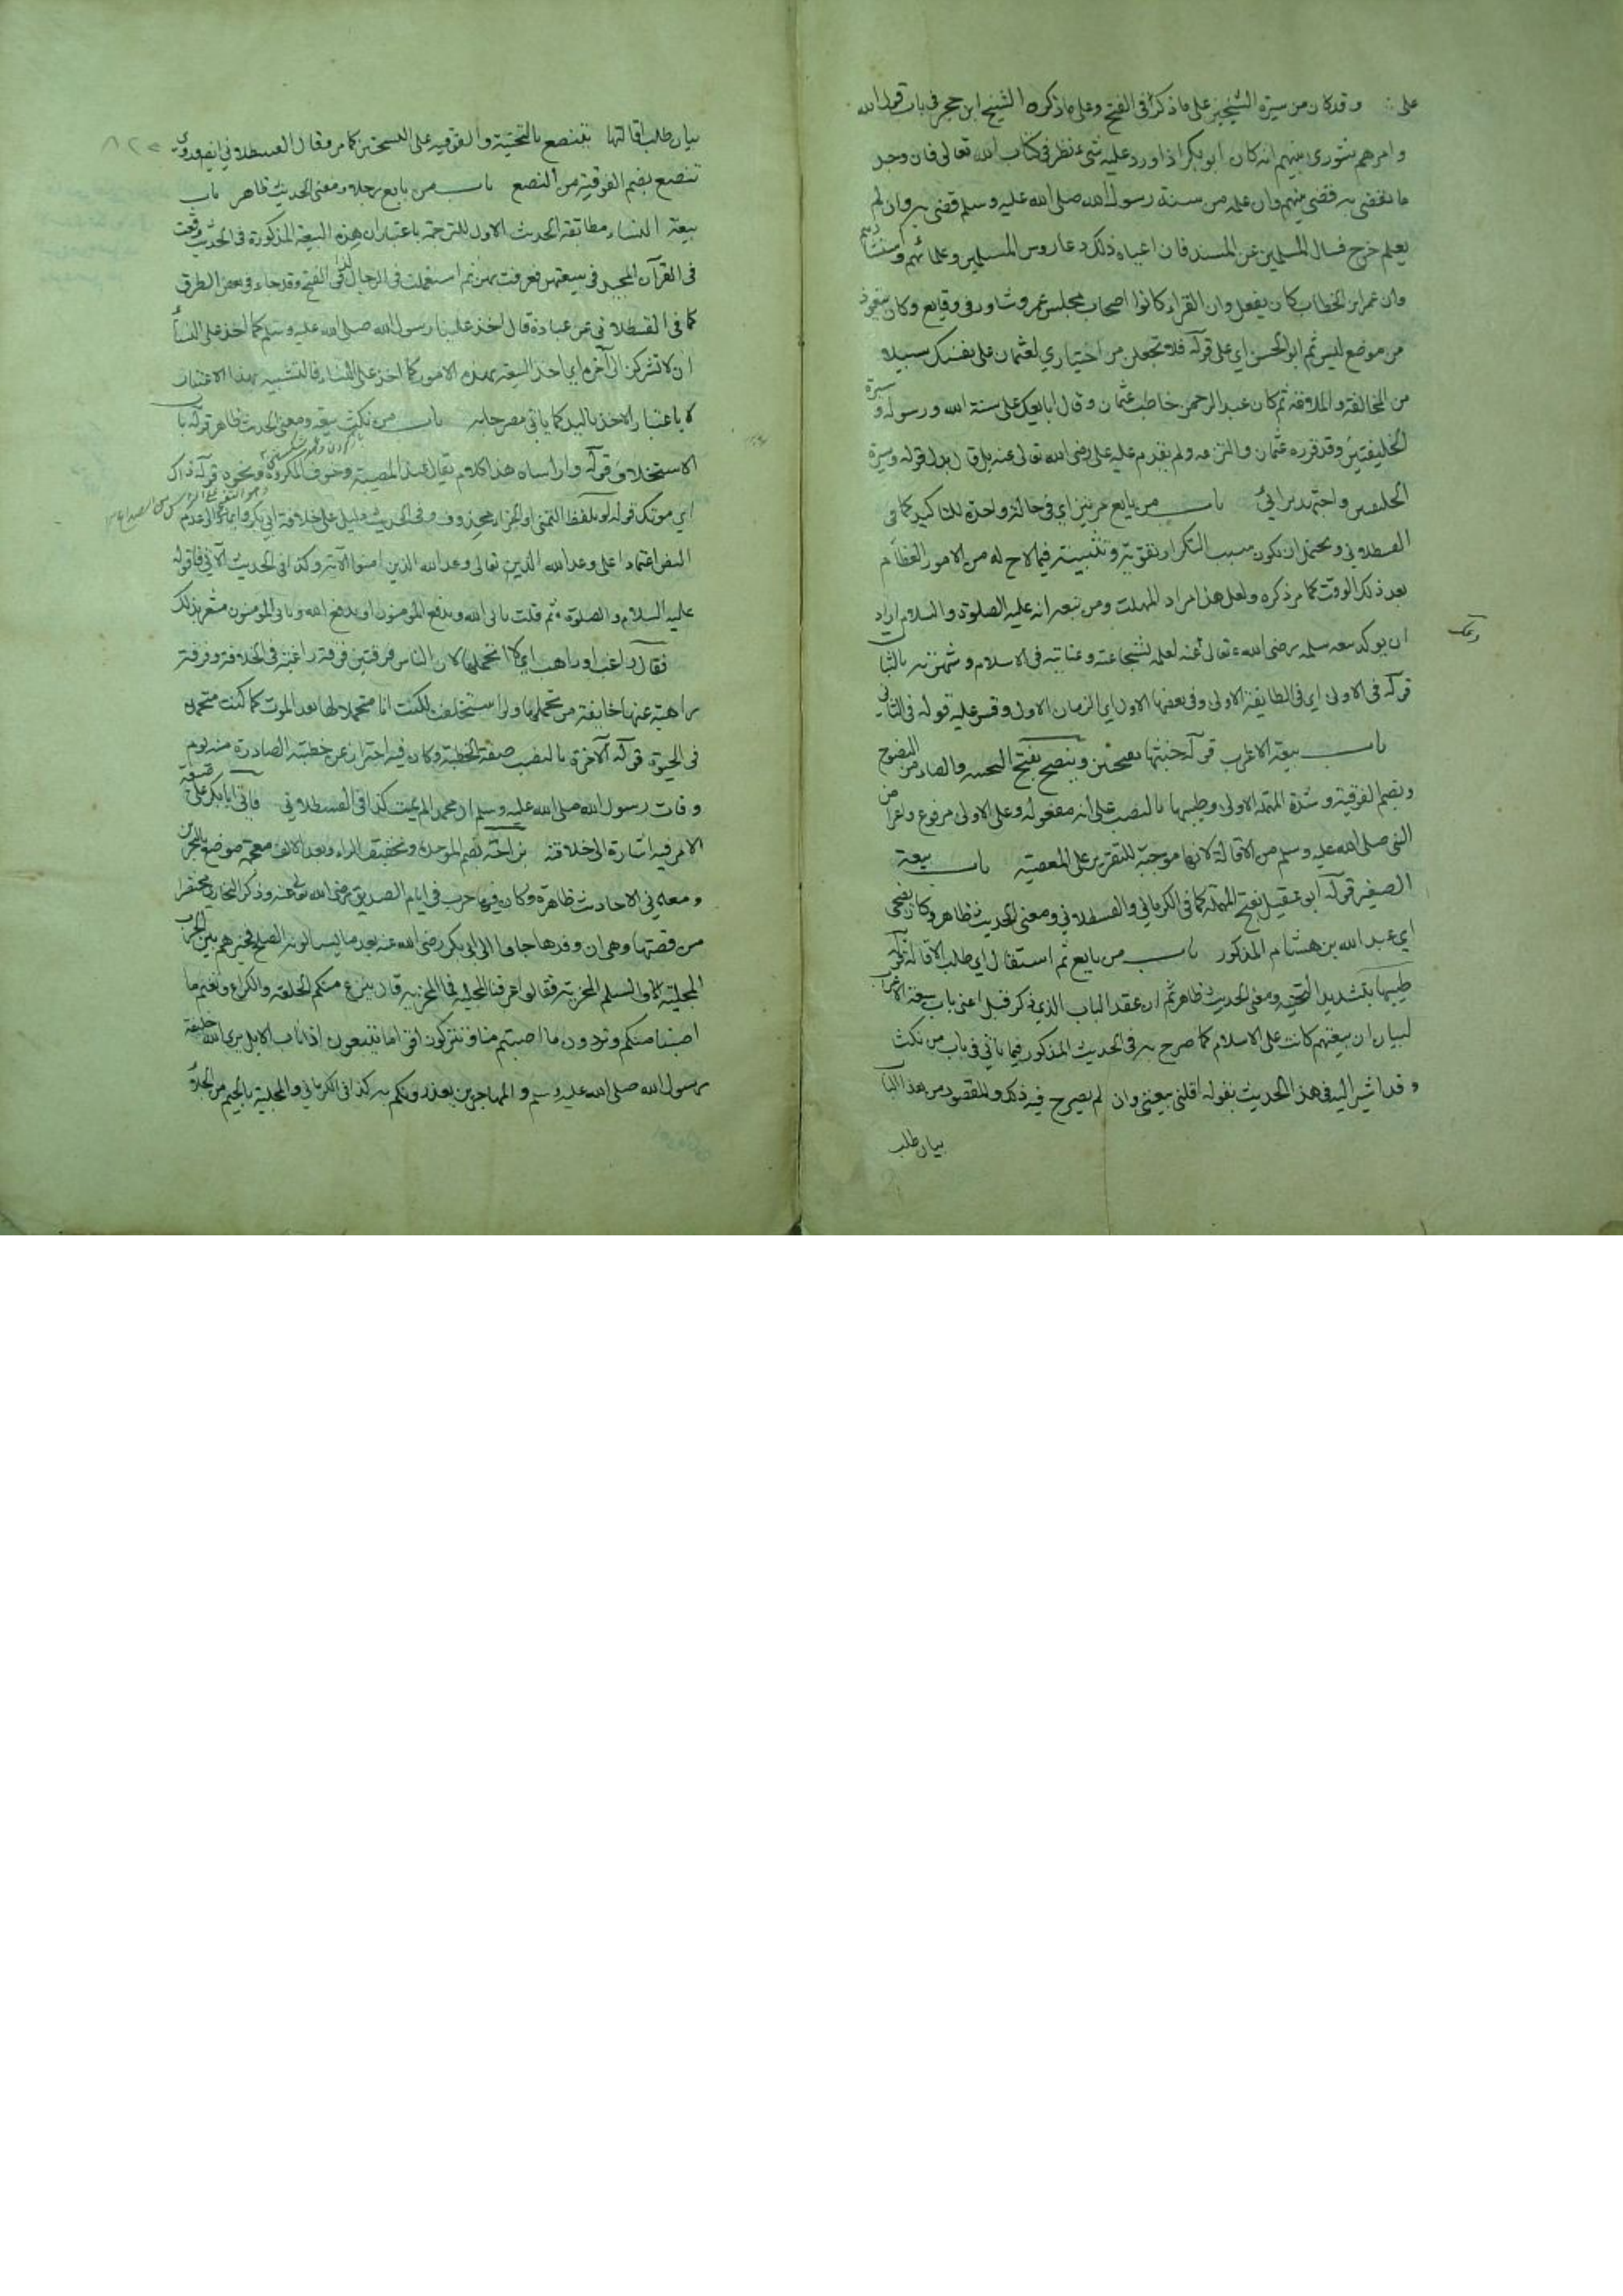 على وقد كان من سيرة الشيخين على ما ذكر في الفتح وعلى ما ذكره الشيخ ابن حجر في باب قول الله
وامرهم شورى بينهم انه كان ابو بكر اذا ورد عليه شيء نظر في كتاب الله تعالى فان وجد
ما يقضي به قضى بينهم وان علمه من سنة رسول الله صلى الله عليه وسلم قضى به وان لم
يعلم خرج فسال المسلمين عن السنة فان اعياه ذلك دعا روس المسلمين وعلمائهم واستشارهم
وان عمر ابن الخطاب كان يفعل وان القراء كانوا اصحاب مجلس عمر وشاور في وقايع وكان يتعوذ
من موضع ليس ثم ابو الحسن اي على قوله فلا تجعلن من اختياري لعثمان على نفسك سبيلا
من المخالفة والملاوفة ثم كان عبد الرحمن خاطب عثمان وقال ابايعك على سنة الله ورسوله وسيرة
الخليفتين وقد قرره عثمان والتزمه ولم يقدم عليه علي رضي الله تعالى عنه بل قال بدل قوله وسيرة
الخليفتين واجتهد برائي باب من بايع مرتين اي في حالة واحدة للتاكيد كما في
القسطلاني ويحتمل ان يكون سبب التكرار تقويته وتثبيته فيما لاح له من الامور العظام
بعد ذلك الوقت كما مر ذكره ولعل هذا مراد المهلب ومن تبعه انه عليه الصلوة والسلام اراد
ان يوكد بيعة سلمة رضي الله تعالى عنه لعلمه لشجاعته وعنايته في الاسلام وشهرته بالثبات
قوله في الاولى اي في الطايفة الاولى وفي بعضها الاول اي الزمان الاول وقس عليه قوله في الثاني
باب بيعة الاعراب قوله خبثها بفتحتين وينصع بفتح التحتية والصاد من النصوع
وبضم الفوقية وشدة المهملة الاولى وطيبها بالنصب على انه مفعوله وعلى الاولى مرفوع واعراض
النبي صلى الله عليه وسلم من الاقالة لانها موجبة للتقرير على المعصية باب بيعة
الصغير قوله ابو عقيل بفتح المهملة كما في الكرماني والقسطلاني ومعنى الحديث ظاهر وكان يضحي
اي عبد الله بن هشام المذكور باب من بايع ثم استقال اي طلب الاقالة قوله
طيبها بتشديد التحتية ومعنى الحديث ظاهر ثم ان عقد الباب الذي ذكر قبل اعني باب بيعة الاعراب
لبيان ان بيعتهم كانت على الاسلام كما صرح به في الحديث المذكور فيما ياتي في باب من نكث
وقد اشير اليه في هذا الحديث بقوله اقلني بيعتي وان لم يصرح فيه ذلك والمقصود من هذا الباب
بيان طلب
بيان طلب اقالتها ينصع بالتحتية والفوقية على النسختين كما مر وقال القسطلاني
تنصع بضم الفوقية من النصع باب من بايع رجلا ومعنى الحديث ظاهر باب
بيعة النساء مطابقة الحديث الاول للترجمة باعتبار ان هذه البيعة المذكورة في الحديث وقعت
في القرآن المجيد في بيعتهن فعرفت بهن ثم استعملت في الرجال كذا في الفتح وقد جاء في بعض الطرق
كما في القسطلاني عن عبادة قال اخذ علينا رسول الله صلى الله عليه وسلم كما اخذ على النساء
ان لا نشرك الى آخره اي اخذ البيعة بهذه الامور كما اخذ على النساء فالتشبيه بهذا الاعتبار
لا باعتبار الاخذ باليد كما ياتي مصرحا به باب من نكث بيعة ومعنى الحديث ظاهر قوله باب
الاستخلاف قوله وا راساه هذا كلام يقال عند المصيبة وخوف المكروه ونحوه قوله ذاك
اي موتك قوله لو بلفظ التمني او الجزاء محذوف وفي الحديث دليل على خلافة ابي بكر
النص اعتمادا على وعد الله تعالى وعد الله الذين امنوا الآية وكذا في الحديث الآتي
عليه السلام والصلوة ثم قلت يابى الله ويدفع المؤمنون او يدفع الله ويابى المؤمنون مشعر بذلك
فقال راغب او راهب اي لا اتحملها لان الناس فرقتين فرقة راغبة في الخلافة وفرقة
راهبة عنها خايفة من تحملها ولو استخلفت لكنت انا متحملا لها بعد الموت كما كنت متحملا
في الحيوة قوله الآخرة بالنصب صفة الخطبة وكان فيه احتراز عن خطبته الصادرة منه يوم
وفات رسول الله صلى الله عليه وسلم ان محمدا لم يمت كذا في القسطلاني فاتى ابا بكر على
الامر فيه اشارة الى خلافته بزاخة بضم الموحدة وتخفيف الزاء وبعد الالف معجمة موضع بالبحرين
ومعاني الاحاديث ظاهرة وكان فيها حرب في ايام الصديق رضي الله تعالى عنه وذكر البخاري مختصرا
من قصتها وهي ان وفدها جاوا الى ابي بكر رضي الله عنه يسالونه الصلح فخيرهم بين الحرب
المجلية او السلم المخزية فقالوا عرفنا المجلية فما المخزية قال ينزع منكم الحلقة والكراع ونغنم ما
اصبنا منكم وتردون ما اصبتم منا وتتركون اقواما تتبعون اذناب الابل حتى يرى الله خليفة
رسول الله صلى الله عليه وسلم والمهاجرين يعذرونكم به كذا في الكرماني والمجلية بالجيم من الجلاء